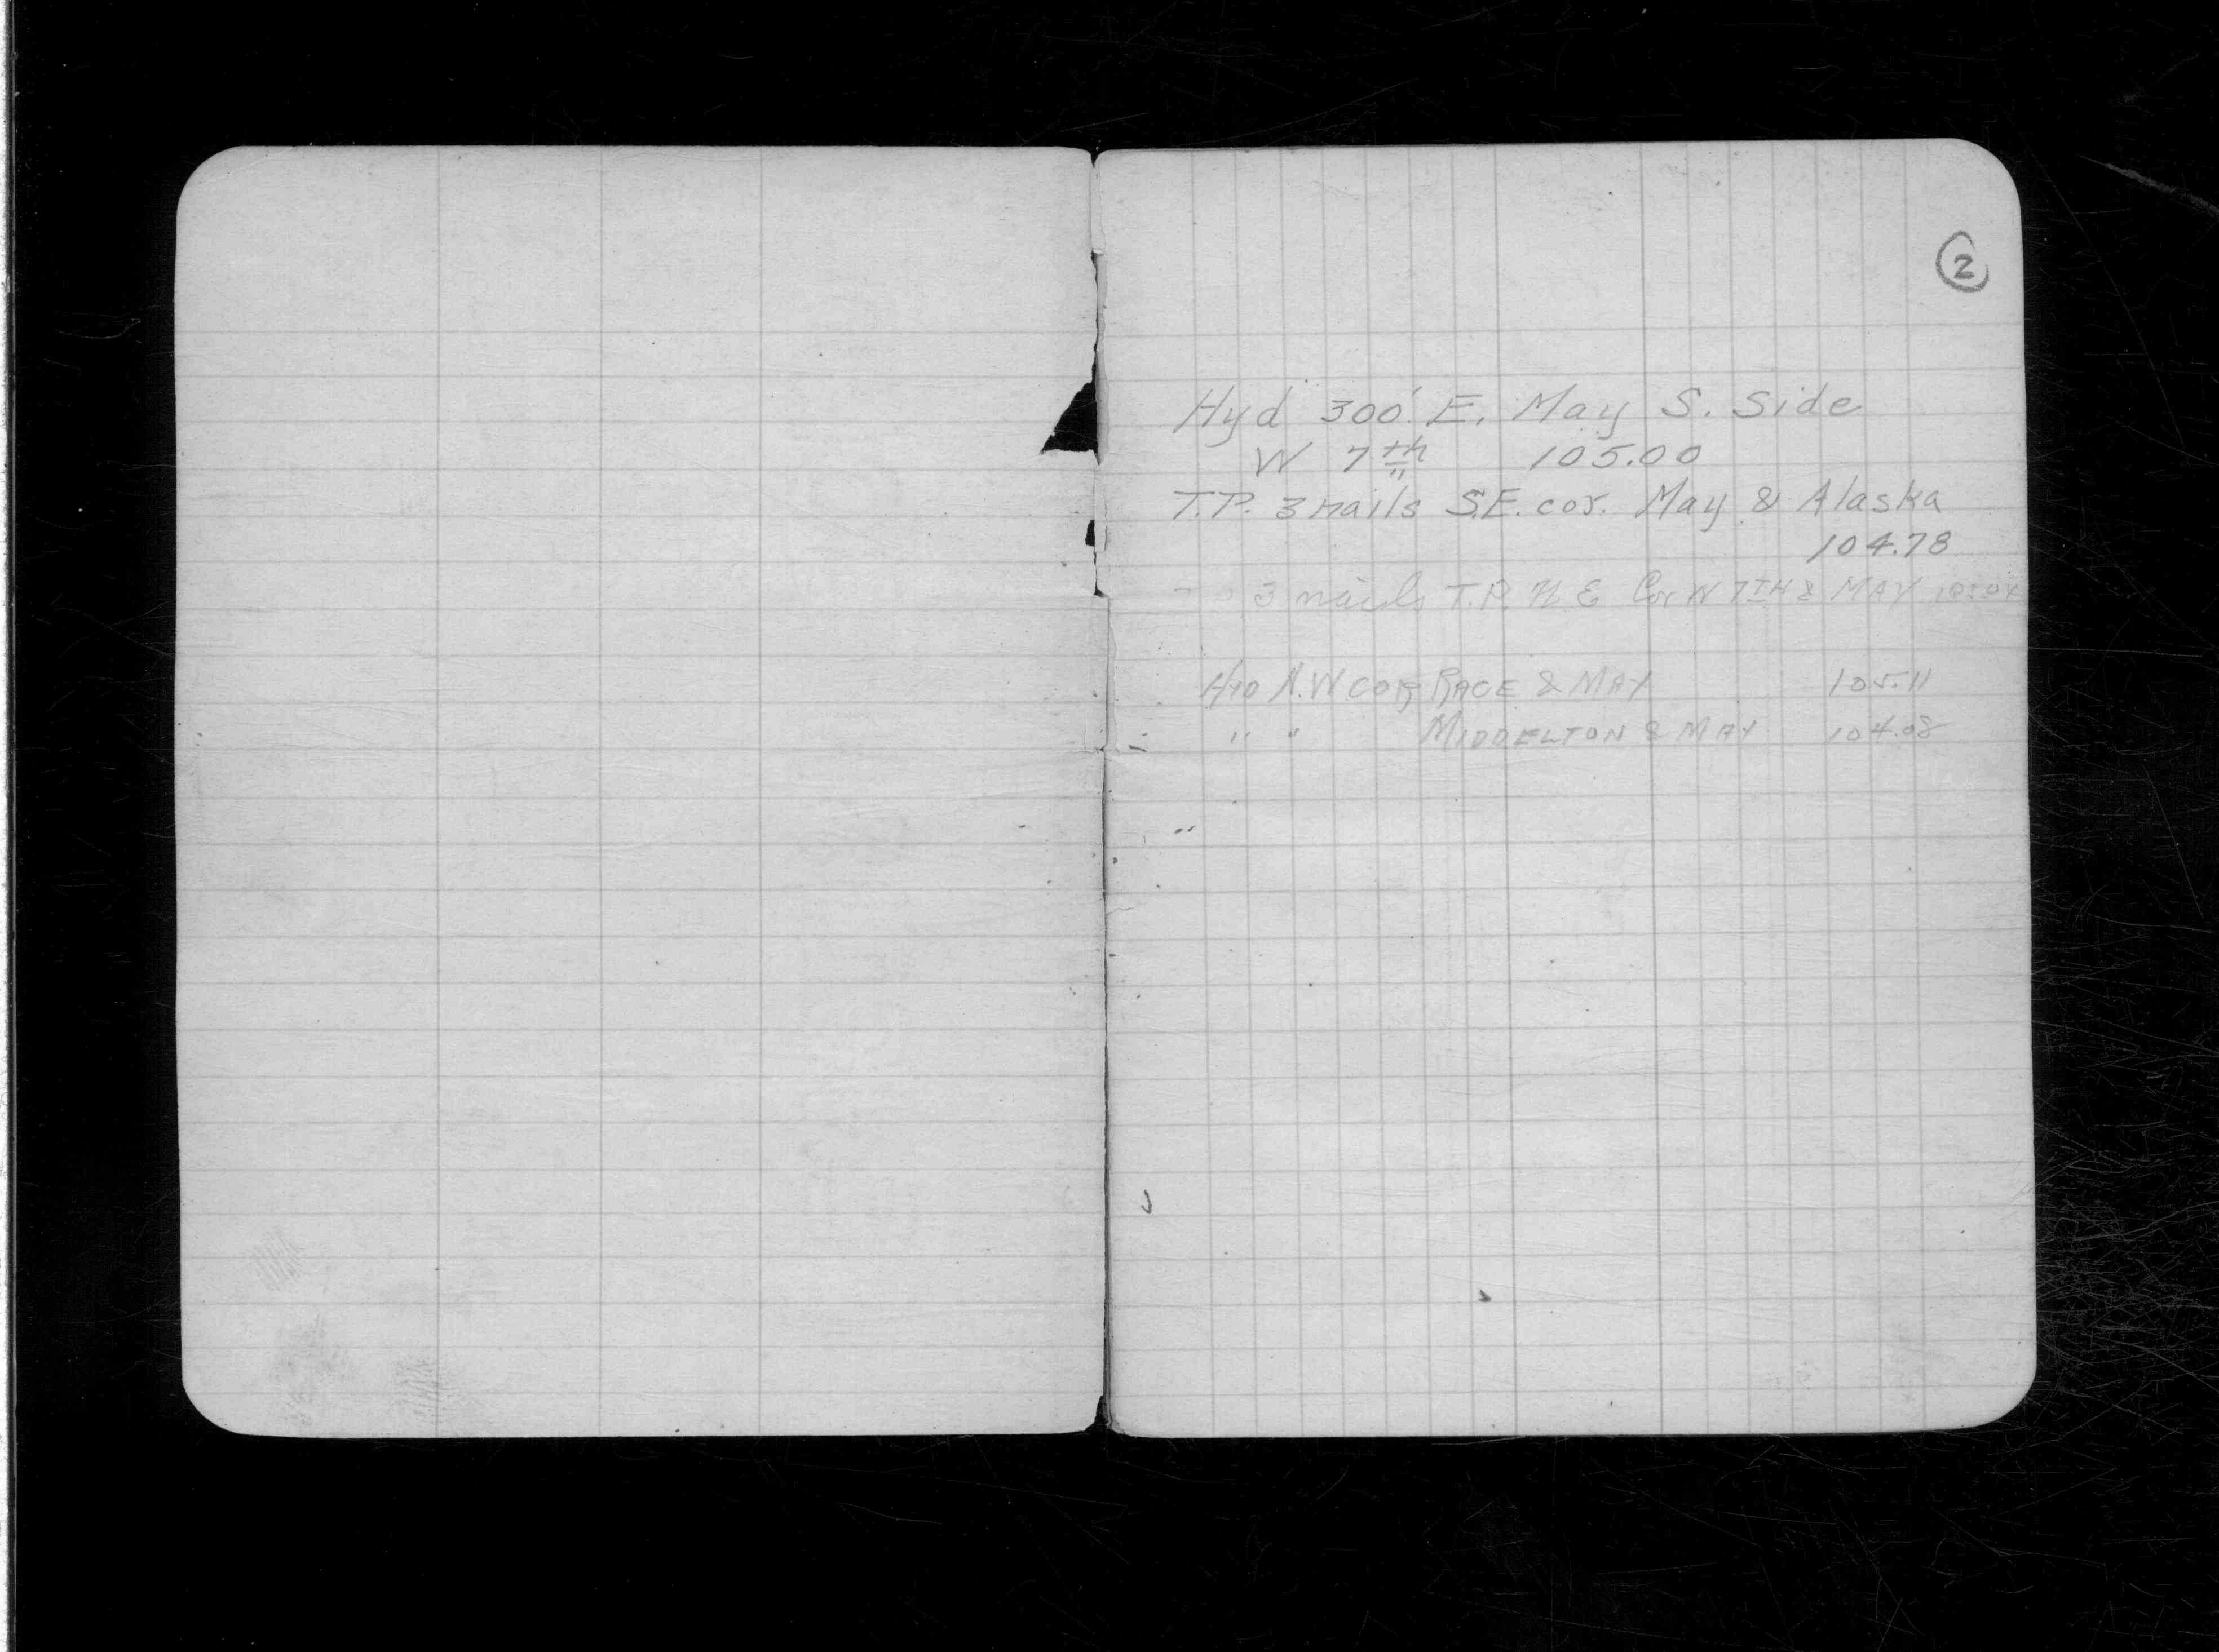 2
Hyd 300' E. May S. Side
W 7th 105.00
T.P. 3 nails S.E. cor. May & Alaska
104.78
3 nails T.P. N E Cor W 7TH & MAY 105.04
HYD N.W COR RACE & MAY 105.11
" " MIDDELTON & MAY 104.08